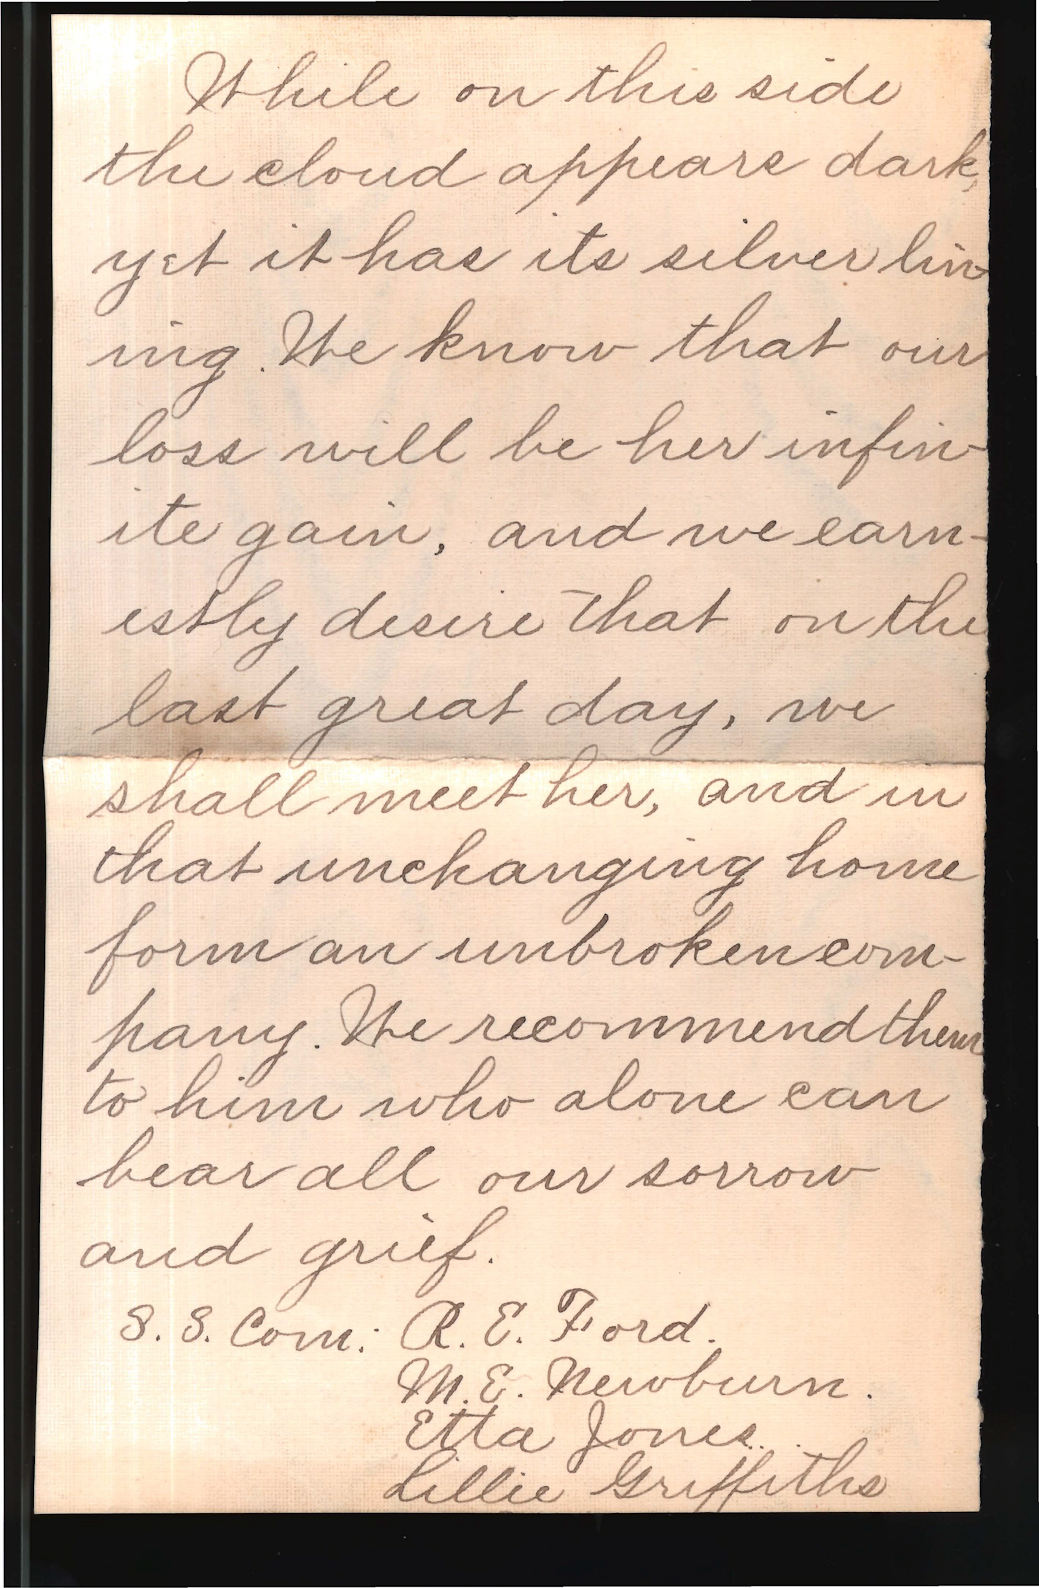 While on this side
the cloud appears dark,
yet it has its silver lin-
ing. We know that our
loss will be her infin-
ite gain, and we earn-
estly desire that on the
last great day, we
shall meet her, and in
that unchanging home
form an unbroken com-
pany. We recommend them
to him who alone can
bear all our sorrow
and grief.
S. S. Com: R. E. Ford.
M. E. Newburn.
Etta Jones.
Lillie Griffiths